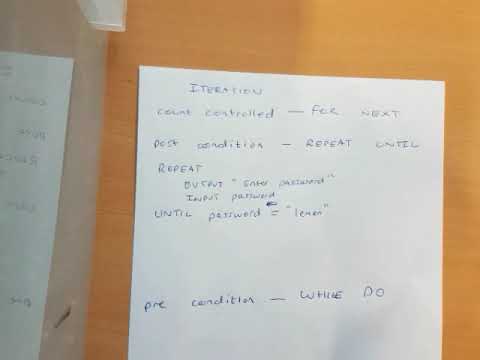 ITERATION
count controlled — FOR NEXT
post condition — REPEAT UNTIL
REPEAT
OUTPUT "Enter password"
INPUT password
UNTIL password = "lemon"
pre condition — WHILE DO